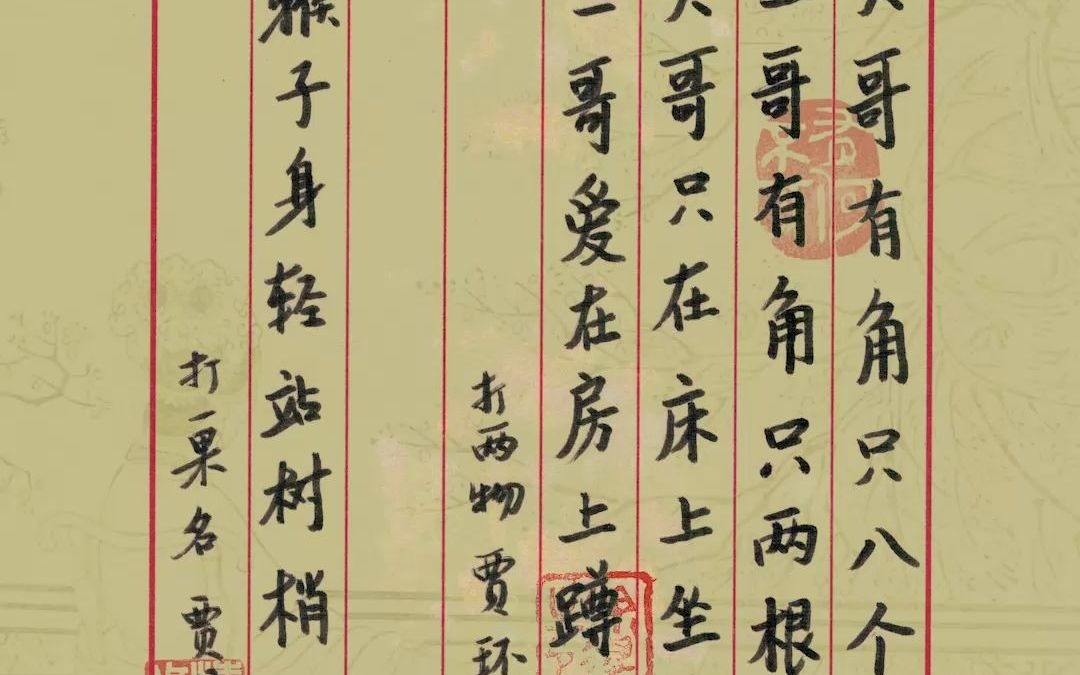 哥有角只八个
哥有角只两根
哥只在床上坐
哥爱在房上蹲
打两物 贾环
猴子身轻站树梢
打一果名 贾